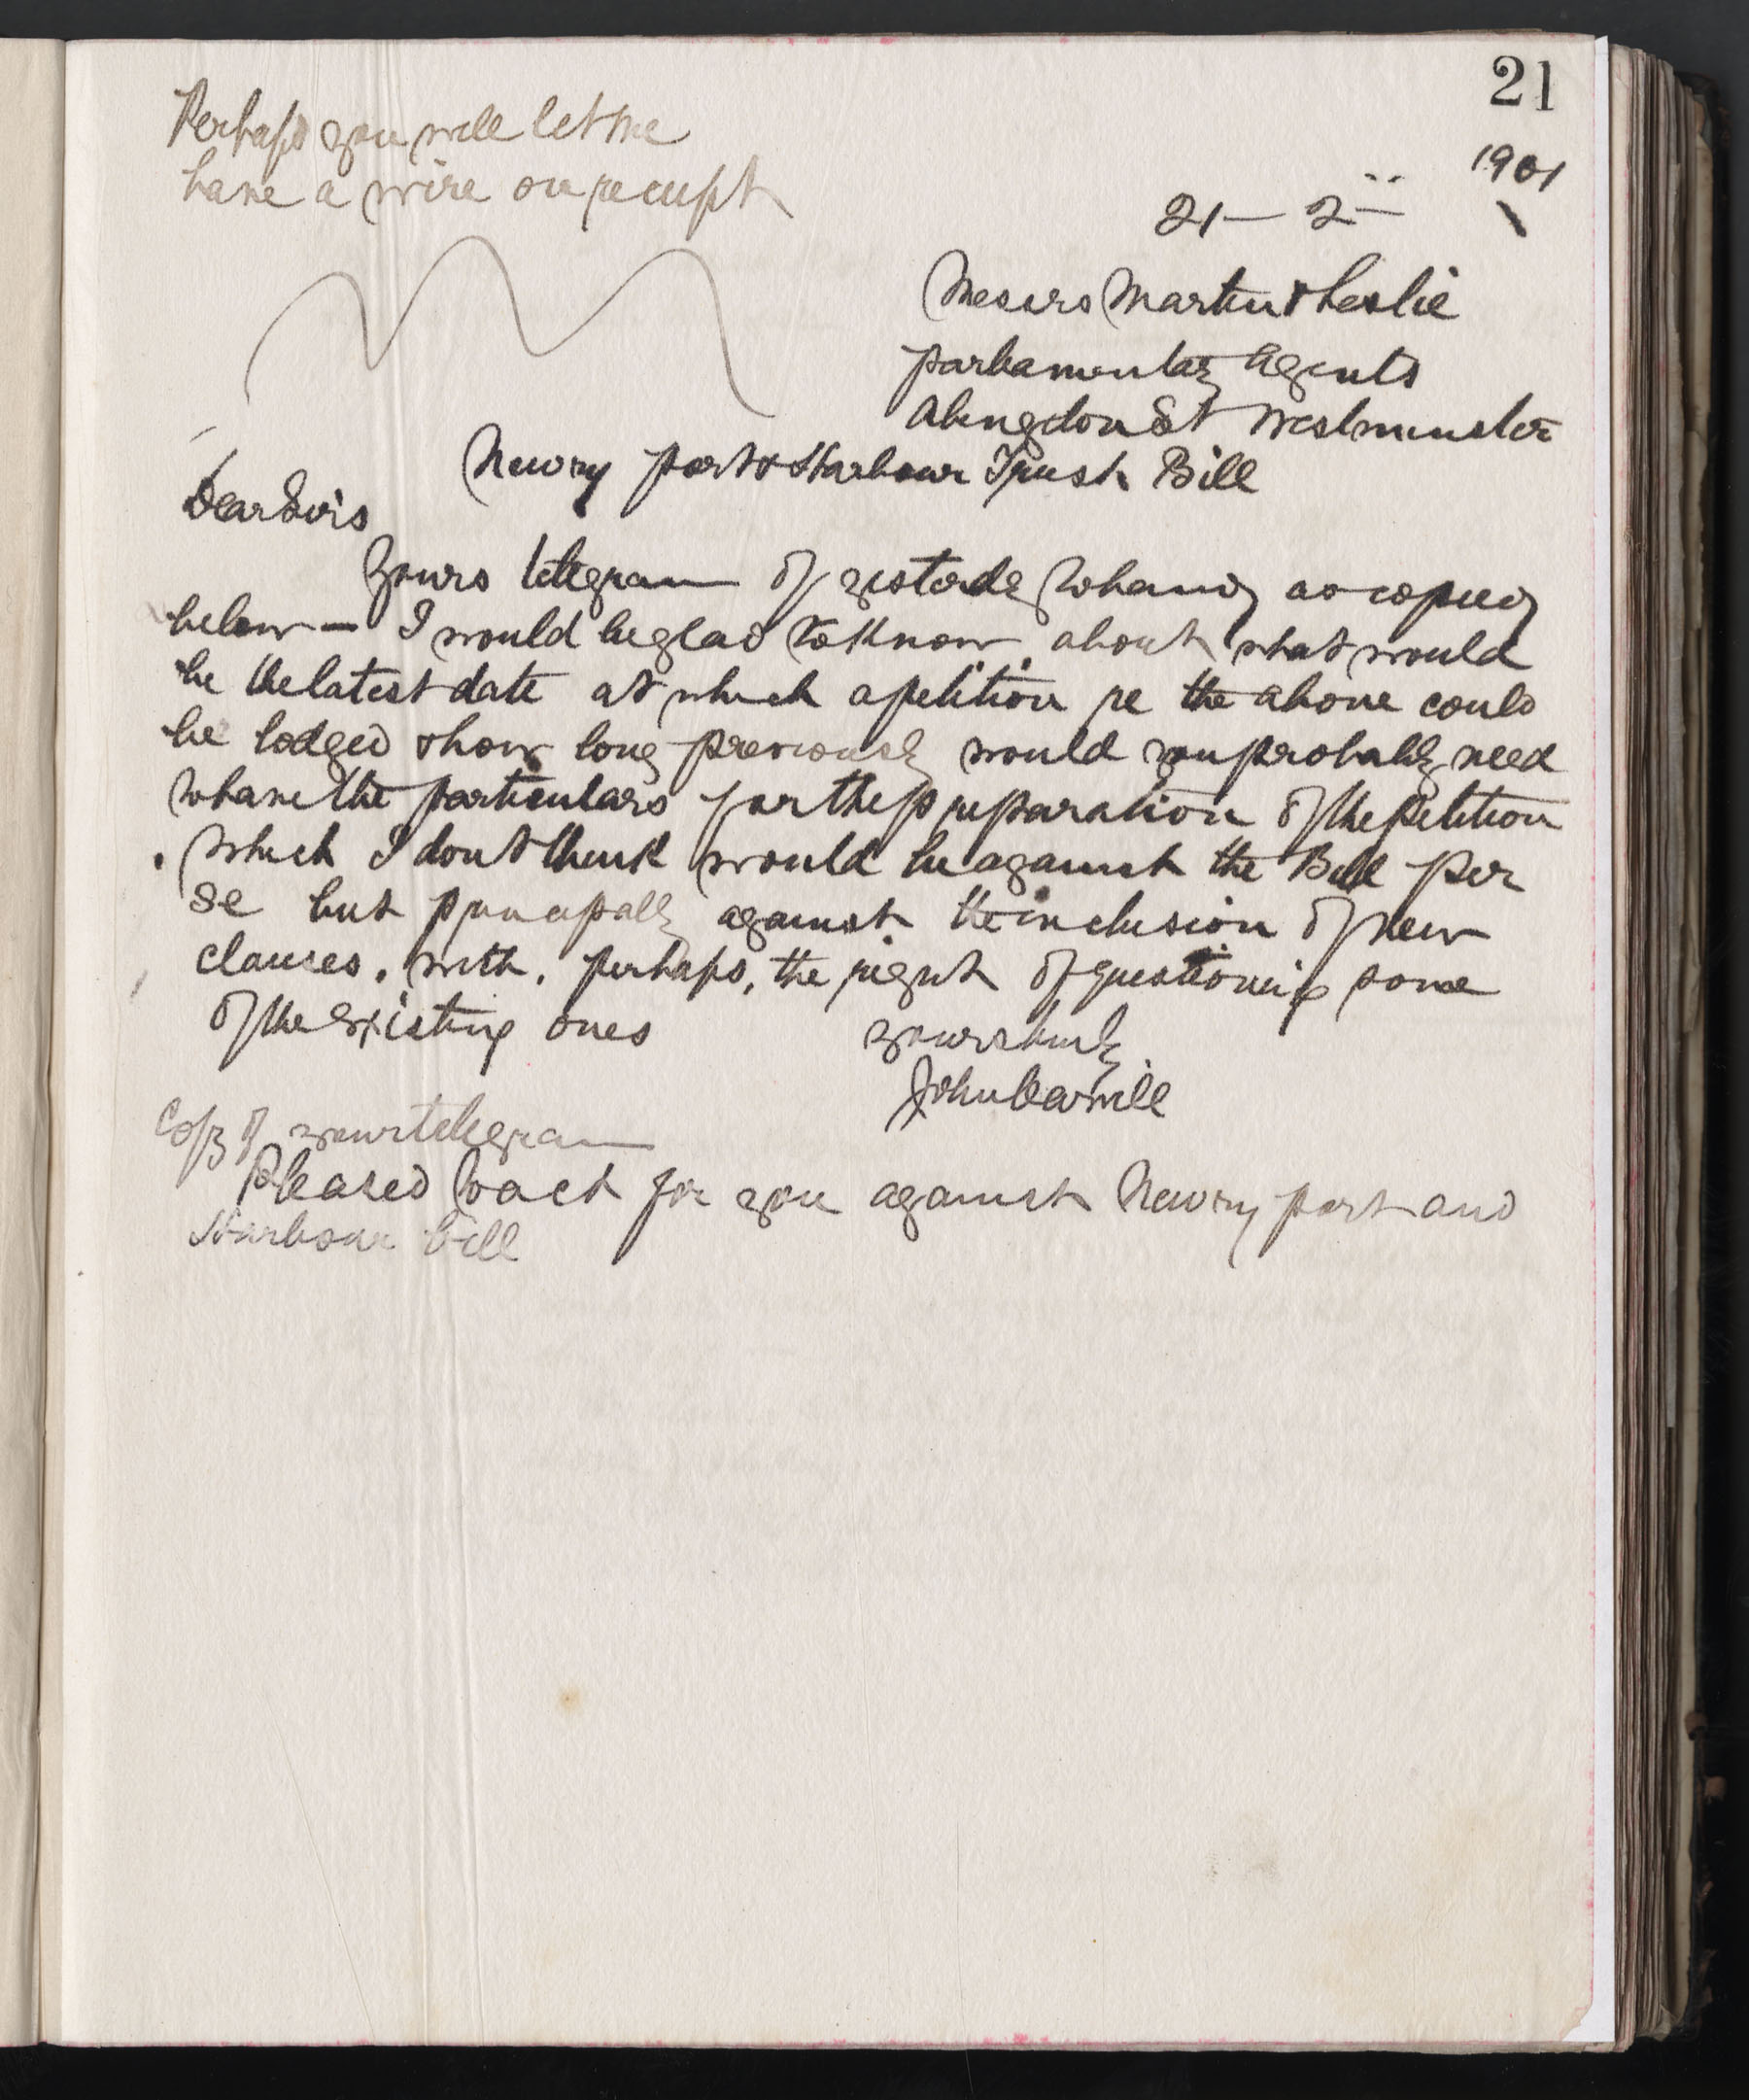 21
Perhaps you will let me
have a wire on receipt
1901
21 - 2 -
Messrs Martin & Leslie
parliamentary Agents
Abingdon St Westminster
Newry port & Harbour Trust Bill
Dear Sirs
Yours telegram of yesterday to hand as copied
below — I would be glad to know about what would
be the latest date at which a petition re the above could
be lodged & how long previously would you probably need
to have the particulars for the preparation of the petition
, which I dont think would be against the Bill per
se but principally against the inclusion of new
clauses, with, perhaps, the right of questioning some
of the existing ones
yours truly
John Carvill
Copy of your telegram
Pleased to act for you against Newry port and
Harbour bill